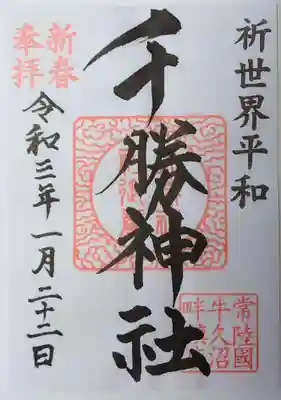 祈世界平和
千勝神社
新春
奉拝
令和三年一月二十二日
常陸國
牛久沼
畔